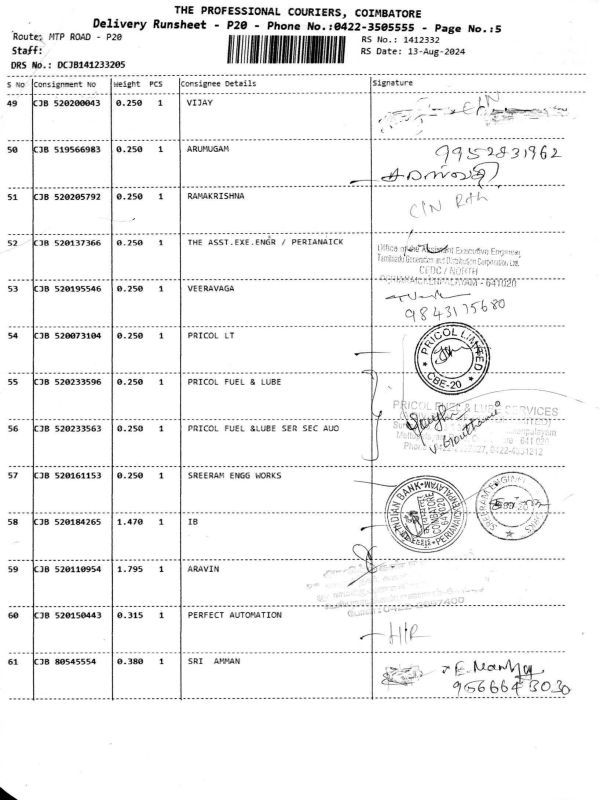 THE PROFESSIONAL COURIERS, COIMBATORE
Delivery Runsheet - P20 - Phone No.:0422-3505555 - Page No.:5
Route: MTP ROAD - P20
RS No.: 1412332
Staff:
RS Date: 13-Aug-2024
DRS No.: DCJB141233205
S No Consignment No Weight PCS Consignee Details Signature
49 CJB 520200043 0.250 1 VIJAY
50 CJB 519566983 0.250 1 ARUMUGAM 9952831962
51 CJB 520205792 0.250 1 RAMAKRISHNA
52 CJB 520137366 0.250 1 THE ASST.EXE.ENGR / PERIANAICK
Office of the Assistant Executive Engineer
Tamilnadu Generation and Distribution Corporation Ltd.
CEDC / NORTH
PERIANAICKENPALAYAM - 641020
53 CJB 520195546 0.250 1 VEERAVAGA
9843175680
54 CJB 520073104 0.250 1 PRICOL LT
PRICOL LIMITED
CBE-20
55 CJB 520233596 0.250 1 PRICOL FUEL & LUBE
PRICOL FUEL & LUBE SERVICES
56 CJB 520233563 0.250 1 PRICOL FUEL &LUBE SER SEC AUO
V. Gouthami
57 CJB 520161153 0.250 1 SREERAM ENGG WORKS
INDIAN BANK PERIANAICKENPALAYAM
COIMBATORE
641020
58 CJB 520184265 1.470 1 IB
59 CJB 520110954 1.795 1 ARAVIN
60 CJB 520150443 0.315 1 PERFECT AUTOMATION
HR
61 CJB 80545554 0.380 1 SRI AMMAN
9566643030